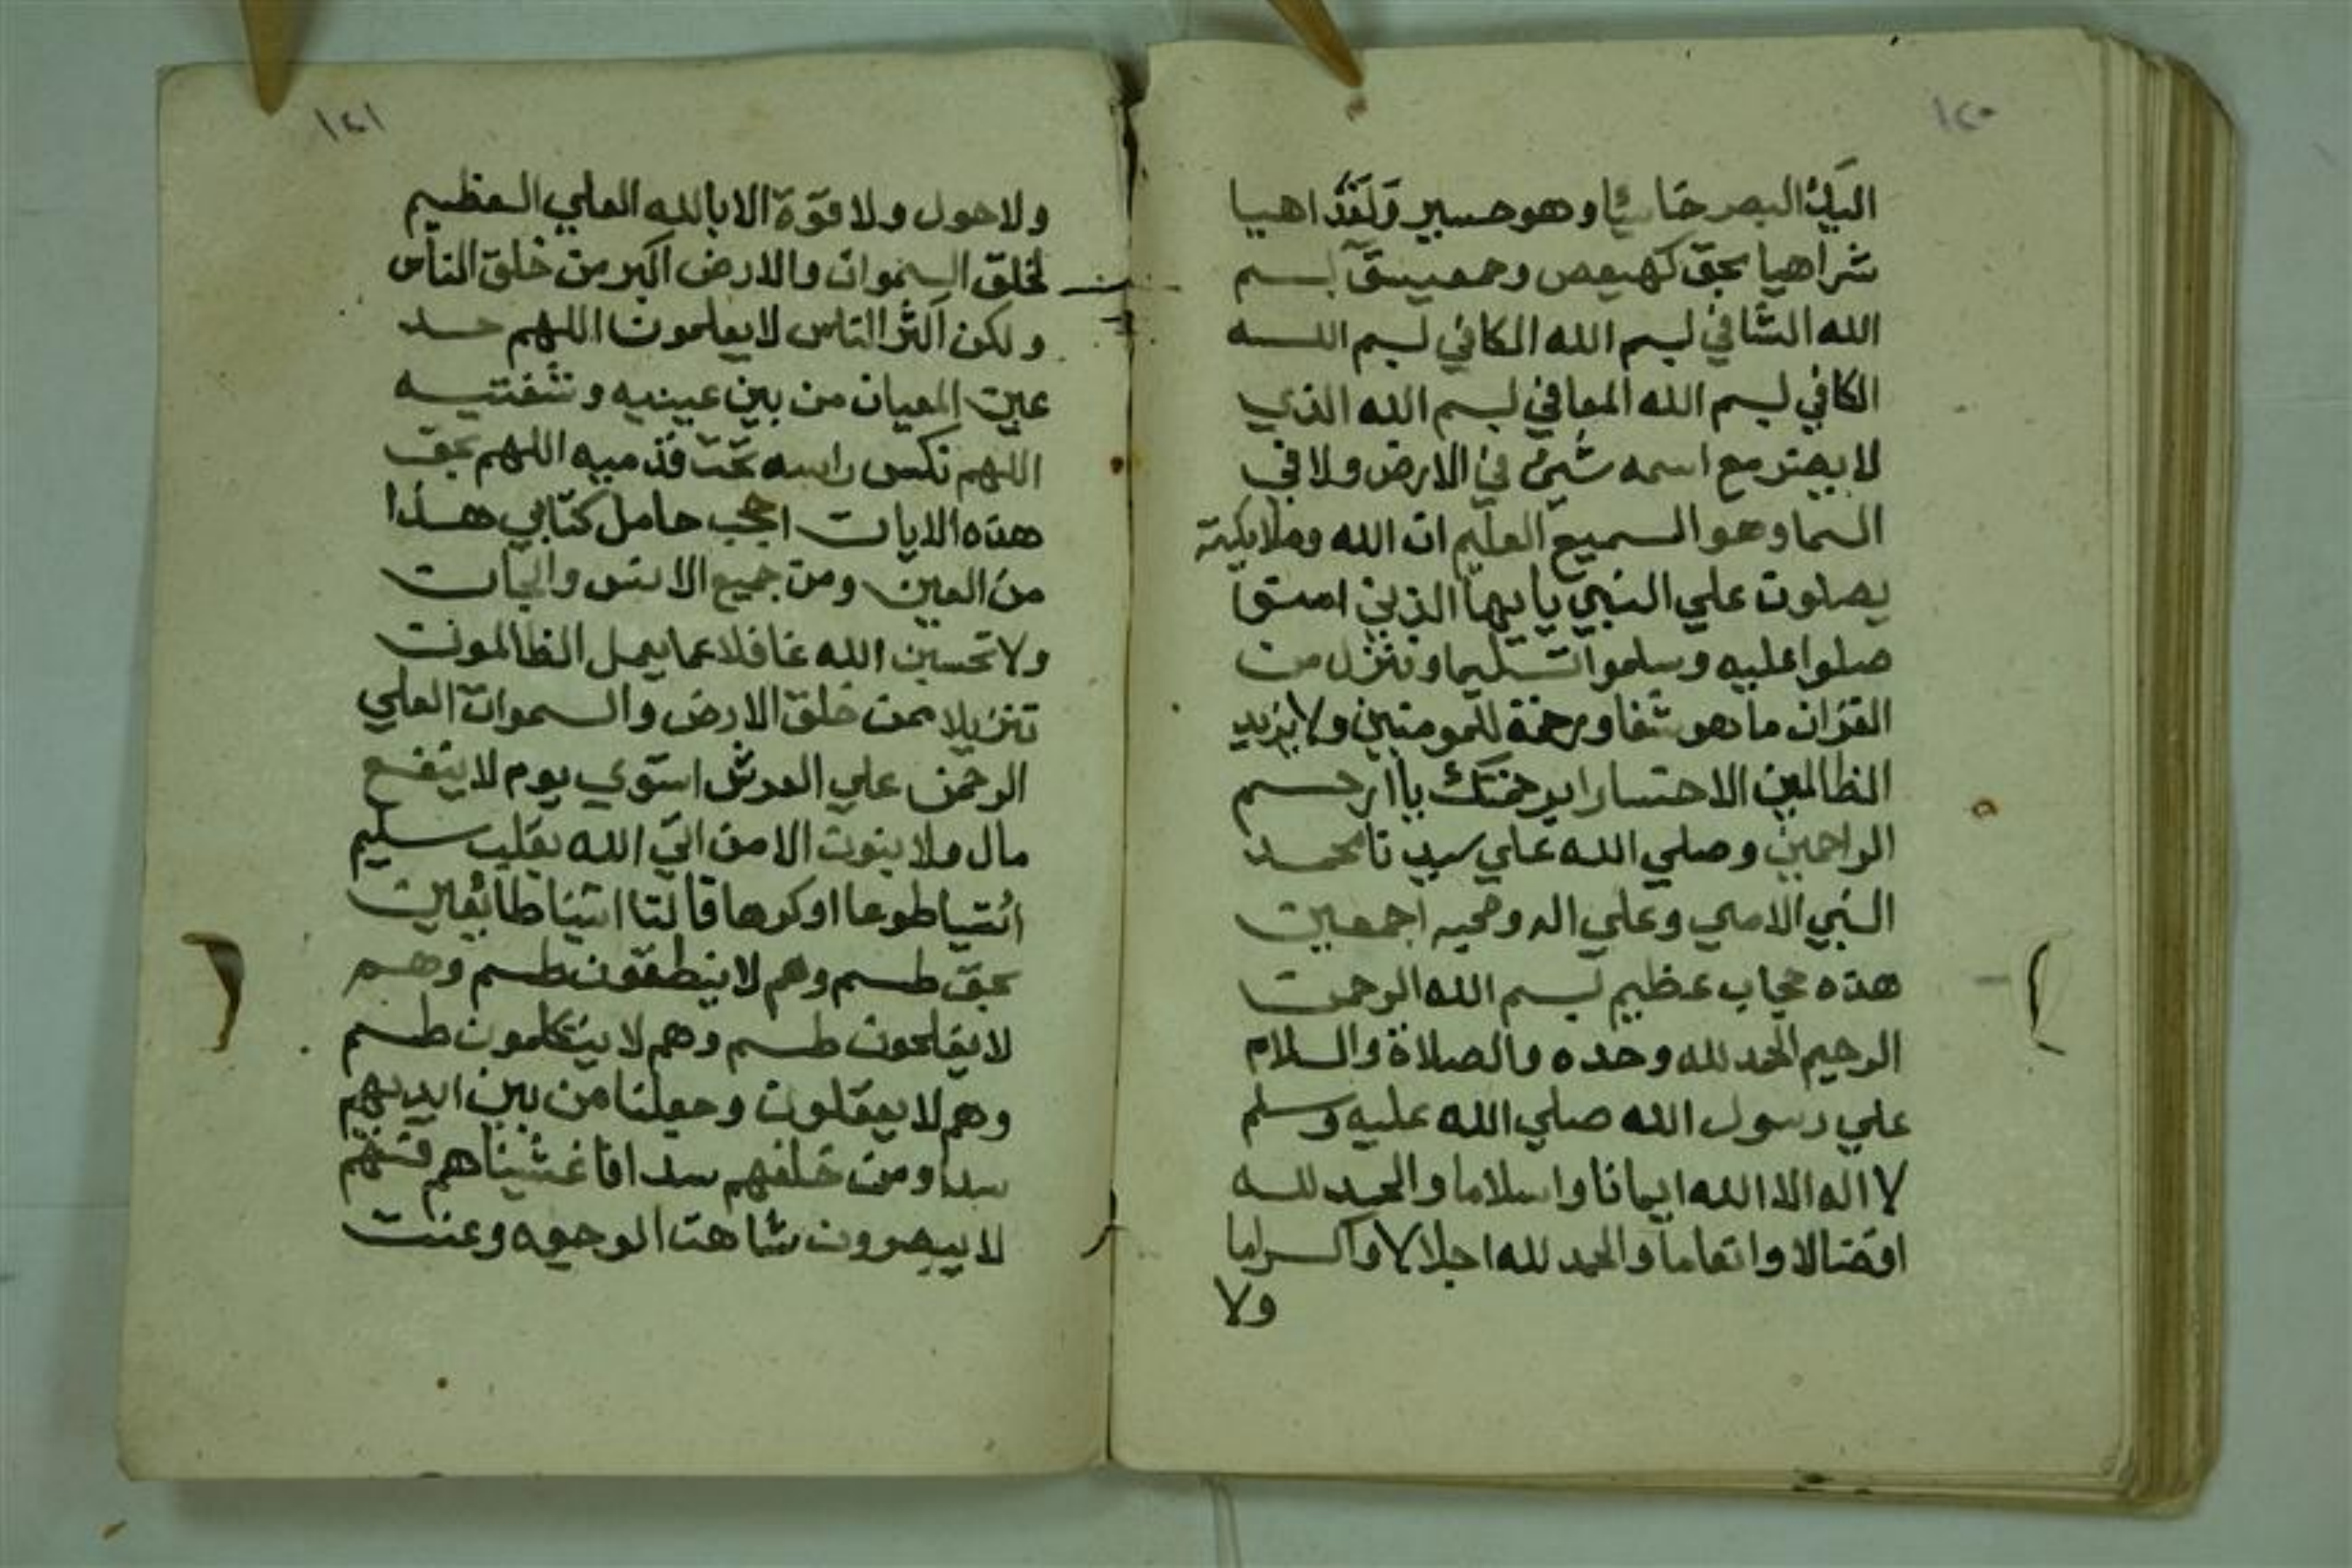 ١٤٠
اليك البصر خاسئا وهو حسير ولقد اهيا
شراهيا بحق كهيعص وحمعسق بسم
الله الشافي بسم الله الكافي بسم اللــه
الكافي بسم الله المعافي بسم الله الذي
لا يضر مع اسمه شيئ في الارض ولا في
السما وهو السميع العليم ان الله وملايكته
يصلون علي النبي يا يها الذين امنوا
صلوا عليه وسلموا تسليما وننزل من
القران ما هو شفا ورحمة للمومنين ولا يزيد
الظالمين الا خسارا برحمتك يا ارحم
الراحمين وصلي الله علي سيدنا محمد
النبي الامي وعلي اله وصحبه اجمعين
هذه حجاب عظيم بسم الله الرحمن
الرحيم الحمد لله وحده والصلاة والسلام
علي رسول الله صلي الله عليه وسلم
لا اله الا الله ايمانا واسلاما والحمد للــه
افضالا وانعاما والحمد لله اجلالا واكراما
ولا
١٤١
ولا حول ولا قوة الا بالله العلي العظيم
لخلق السموات والارض اكبر من خلق الناس
ولكن اكثر الناس لا يعلمون اللهم خد
عين المعيان من بين عينيه وشفتيه
اللهم نكس راسه تحت قدميه اللهم بحق
هذه الايات احجب حامل كتابي هذا
من العين ومن جميع الانس والجان
ولا تحسبن الله غافلا عما يعمل الظالمون
تنزيلا ممن خلق الارض والسموات العلي
الرحمن علي العرش استوي يوم لا ينفع
مال ولا بنون الا من اتي الله بقلب سليم
ائتيا طوعا او كرها قالتا اتينا طائعين
بحق طسم وهم لا ينطقون طسم وهم
لا يفلحون طسم وهم لا يتكلمون طسم
وهم لا يعقلون وجعلنا من بين ايديهم
سدا ومن خلفهم سدا فاغشيناهم فهم
لا يبصرون شاهت الوجوه وعنت